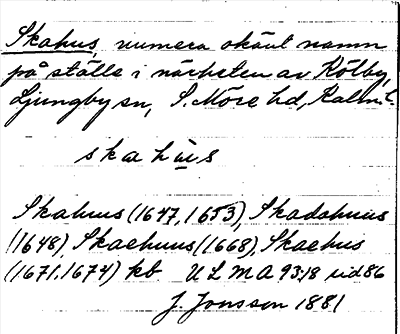 Skahus, numera okänt namn
på ställe i närheten av Kölby,
Ljungby sn, S. Möre hd, Kalm. l.
ska hus
Skahus (1647, 1653), Skadehuus
(1648), Skaehuus (1668), Skaehus
(1671, 1674) kb ULMA 93:18 sid 86
J. Jonsson 1881